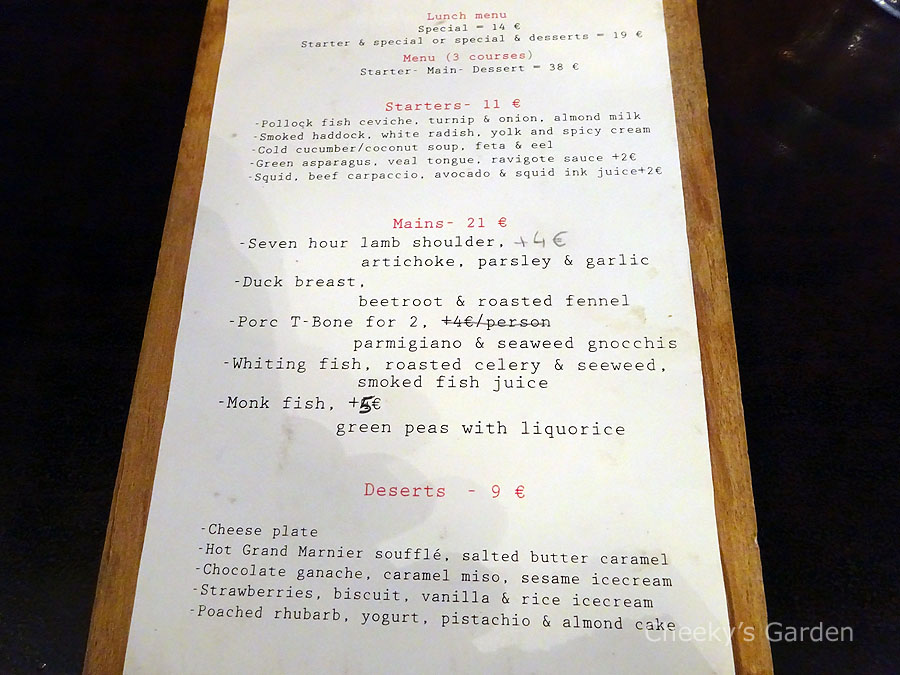 Lunch menu
Special = 14 €
Starter & special or special & desserts = 19 €
Menu (3 courses)
Starter- Main- Dessert = 38 €
Starters- 11 €
-Pollock fish ceviche, turnip & onion, almond milk
-Smoked haddock, white radish, yolk and spicy cream
-Cold cucumber/coconut soup, feta & eel
-Green asparagus, veal tongue, ravigote sauce +2€
-Squid, beef carpaccio, avocado & squid ink juice+2€
Mains- 21 €
-Seven hour lamb shoulder, +4€
artichoke, parsley & garlic
-Duck breast,
beetroot & roasted fennel
-Porc T-Bone for 2, +4€/person
parmigiano & seaweed gnocchis
-Whiting fish, roasted celery & seeweed,
smoked fish juice
-Monk fish, +5€
green peas with liquorice
Deserts - 9 €
-Cheese plate
-Hot Grand Marnier soufflé, salted butter caramel
-Chocolate ganache, caramel miso, sesame icecream
-Strawberries, biscuit, vanilla & rice icecream
-Poached rhubarb, yogurt, pistachio & almond cake
Cheeky's Garden